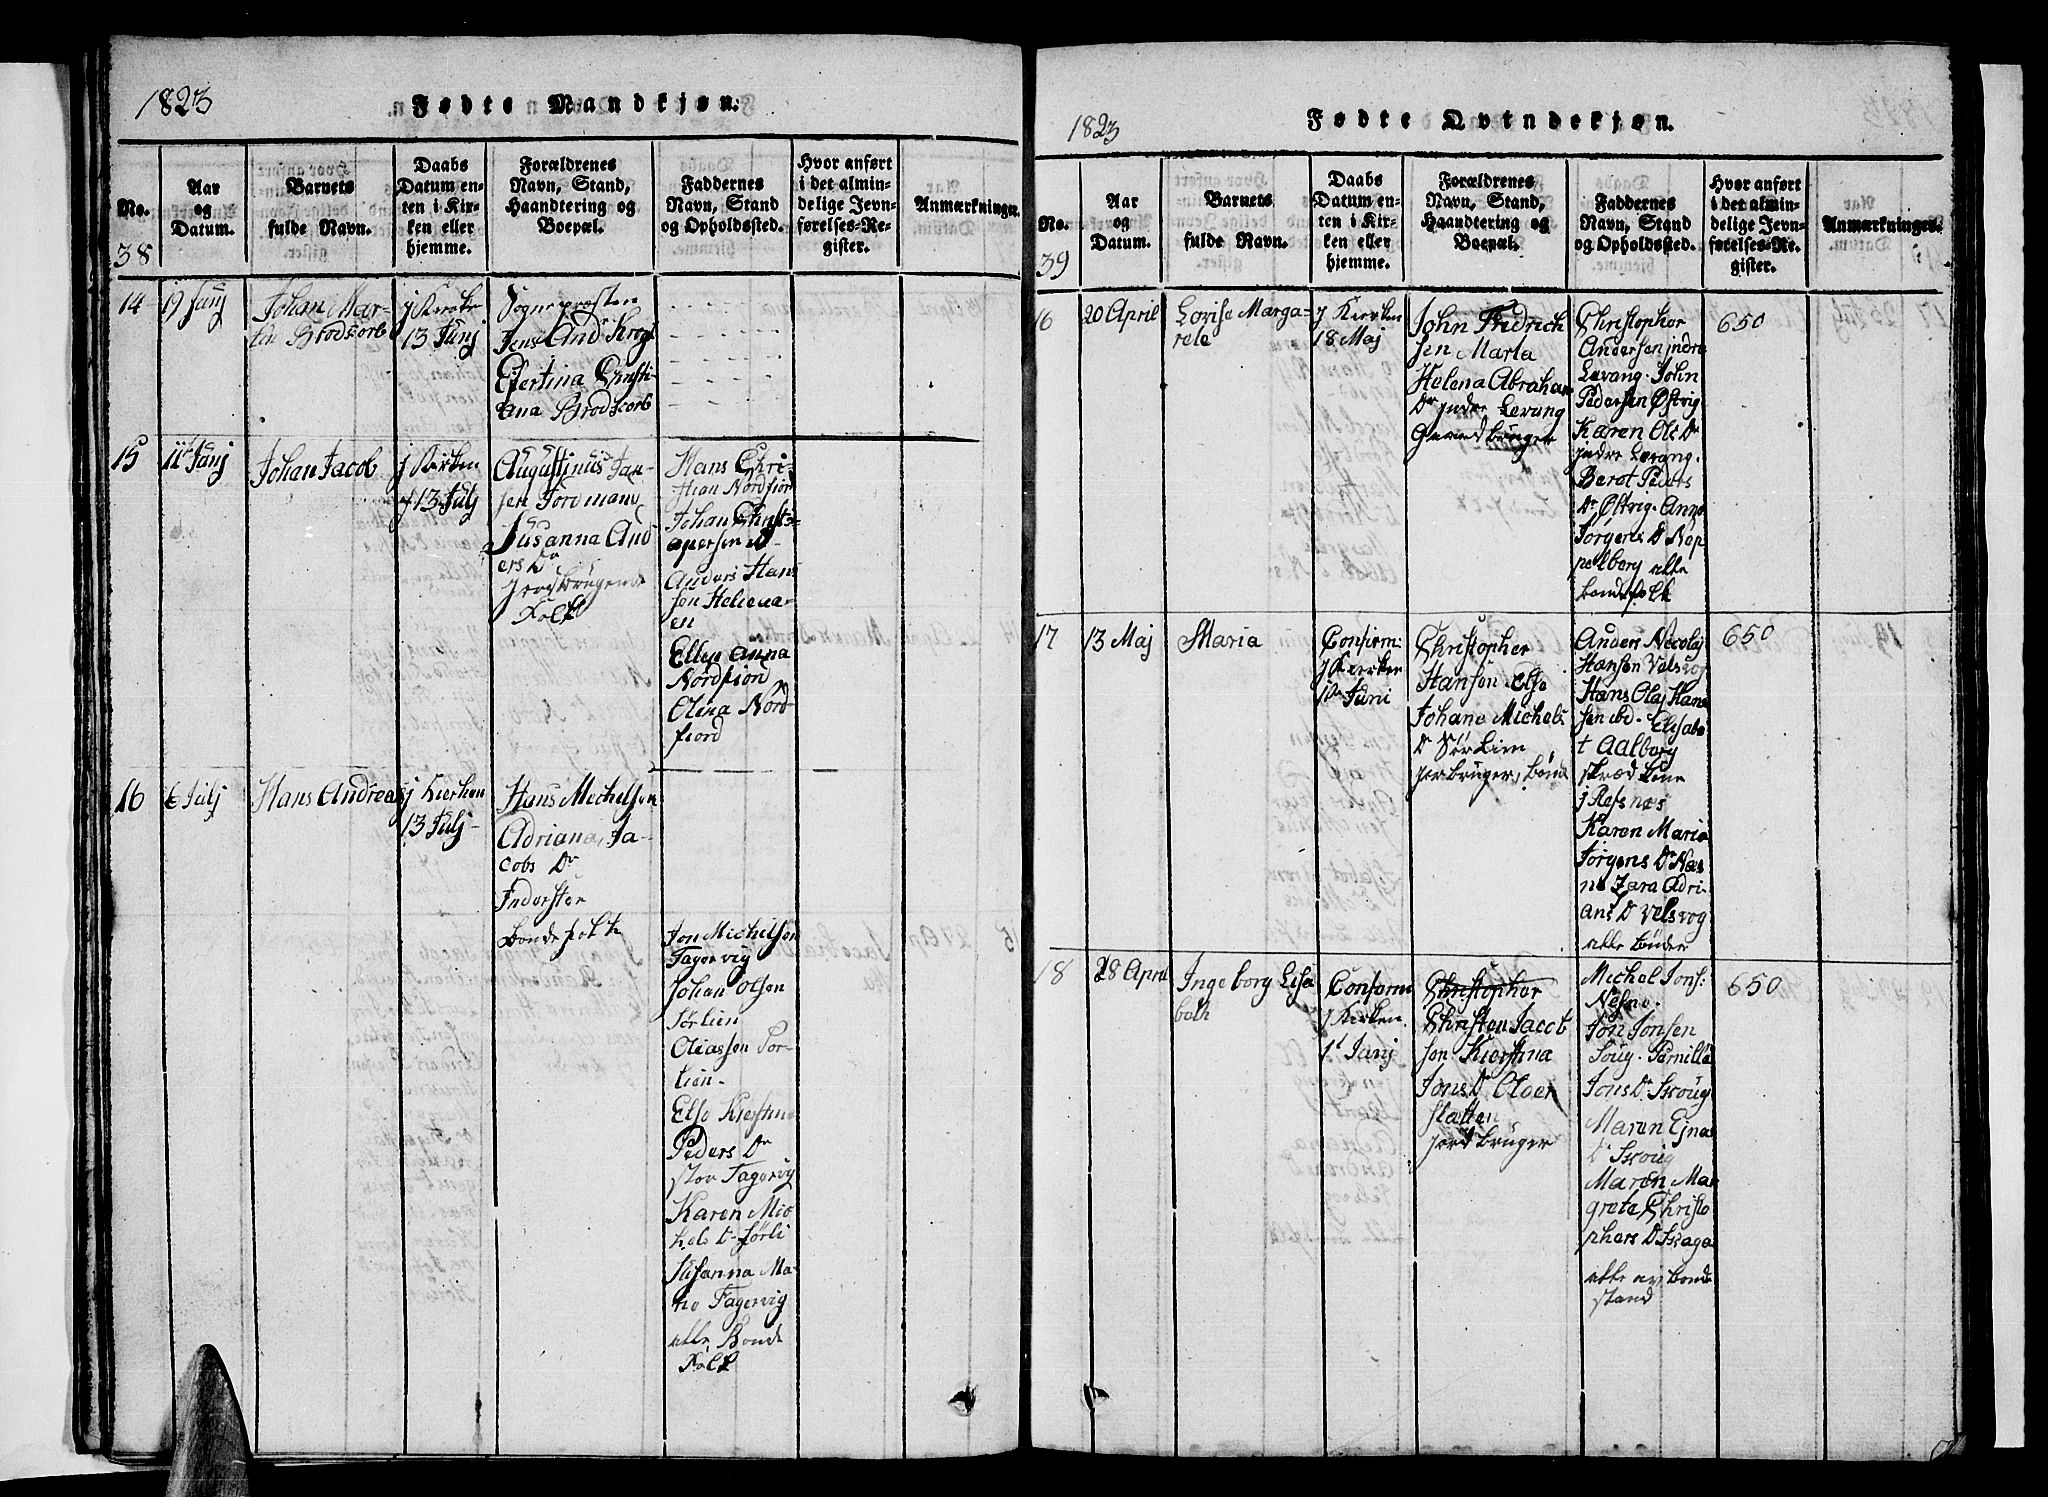 1823
Fødte Mandkjøn.
No.
38
Aar
og
Datum.
Barnets
fulde Navn.
Daabs
Datum en-
ten i Kir-
ken eller
hjemme.
Forældrenes
Navn, Stand,
Haandtering og
Boepæl.
Faddernes
Navn, Stand
og Opholdssted.
Hvor anført
i det almin-
delige Jevn-
førelses-Re-
gister.
Anmærkninger.
14
Johan Mar-
tin Brodkorb
j Kirke
13 Junj
Sognepræsten
Jens And Krog
Christi-
ana Brodkorb
15
11t Junj
Johan Jacob
j Kirken
13 Julj
Augustinus Jan-
sen Fordmand
Susanna And
ers Dr
Jordbrugende
Folk
Hans Chri-
stian Nordfiord
Johan Christ-
Anders Hans
sen
Ellen Anna
Nordfiord
Olina Nord-
fiord
16
6 Julj
Hans Andreas
j Kierken
13 Julj
Hans Michelsen
Adriana Ja-
cobs Dr
Inderster
Bondefolk
Jon Michelsen
Fagervig
Johan Olsen
Sørlien
Olias sen Sør-
lien
Else Kierstine
Peders Dr
stor Fagervig
Karen Mic
hels D Sørli
Susanna Ma-
Fagervig
alle Bonde
Folk
1823
Fødte Qvindekjøn.
No.
39
Aar
og
Datum.
Barnets
fulde Navn.
Daabs
Datum en-
ten i Kir-
ken eller
hjemme.
Forældrenes
Navn, Stand,
Haandtering og
Boepæl.
Faddernes
Navn, Stand
og Opholdssted.
Hvor anført
i det almin-
delige Jevn-
førelses-Re-
gister.
Anmærkninger.
16
20 April
Lovise Marga-
rete
j Kirken
18 Maj
John Fredrich
sen Marta
Helena Abraham
Dr jndre Levang
Gaardbruger
Christopher
Andersen jndre
Levang. John
Pedersen Østvig
Karen Ols Dr
jndre Levang.
Berot Peders
Dr Østvig. Anne
Jørgens Dr Nop-
pelborg alle
bondefolk
650
17
13 Maj
Maria
Confirm:
j Kirken
1ste Juni
Christopher
Hansen Else
Johana Michels
Dr Sørliin
Anders Nicolaj
Hansen Velsvog
Hans Olaj Han
sen ibd. Elisabe
t Aalborg
j Refsnæs
Karen Maria
Jørgens Dr Næs
ne Zara Adri-
ans Dr Velsvog
alle bønder
650
18
28 April
Ingeborg Elisa
beth
Confirm
j Kirken
1t Junj
Christopher
Christen Jacob
sen Kierstina
Jons Dr Older
slatten
jordbruger
Michel Jons:
Nesne.
Jon Jonsen
Soug. Pernille
Jons Dr Skoug
Maren Ejnas
Dr Skoug
Maren Mar
greta Christo
phers Dr Skaga
alle av bonde
stand
650